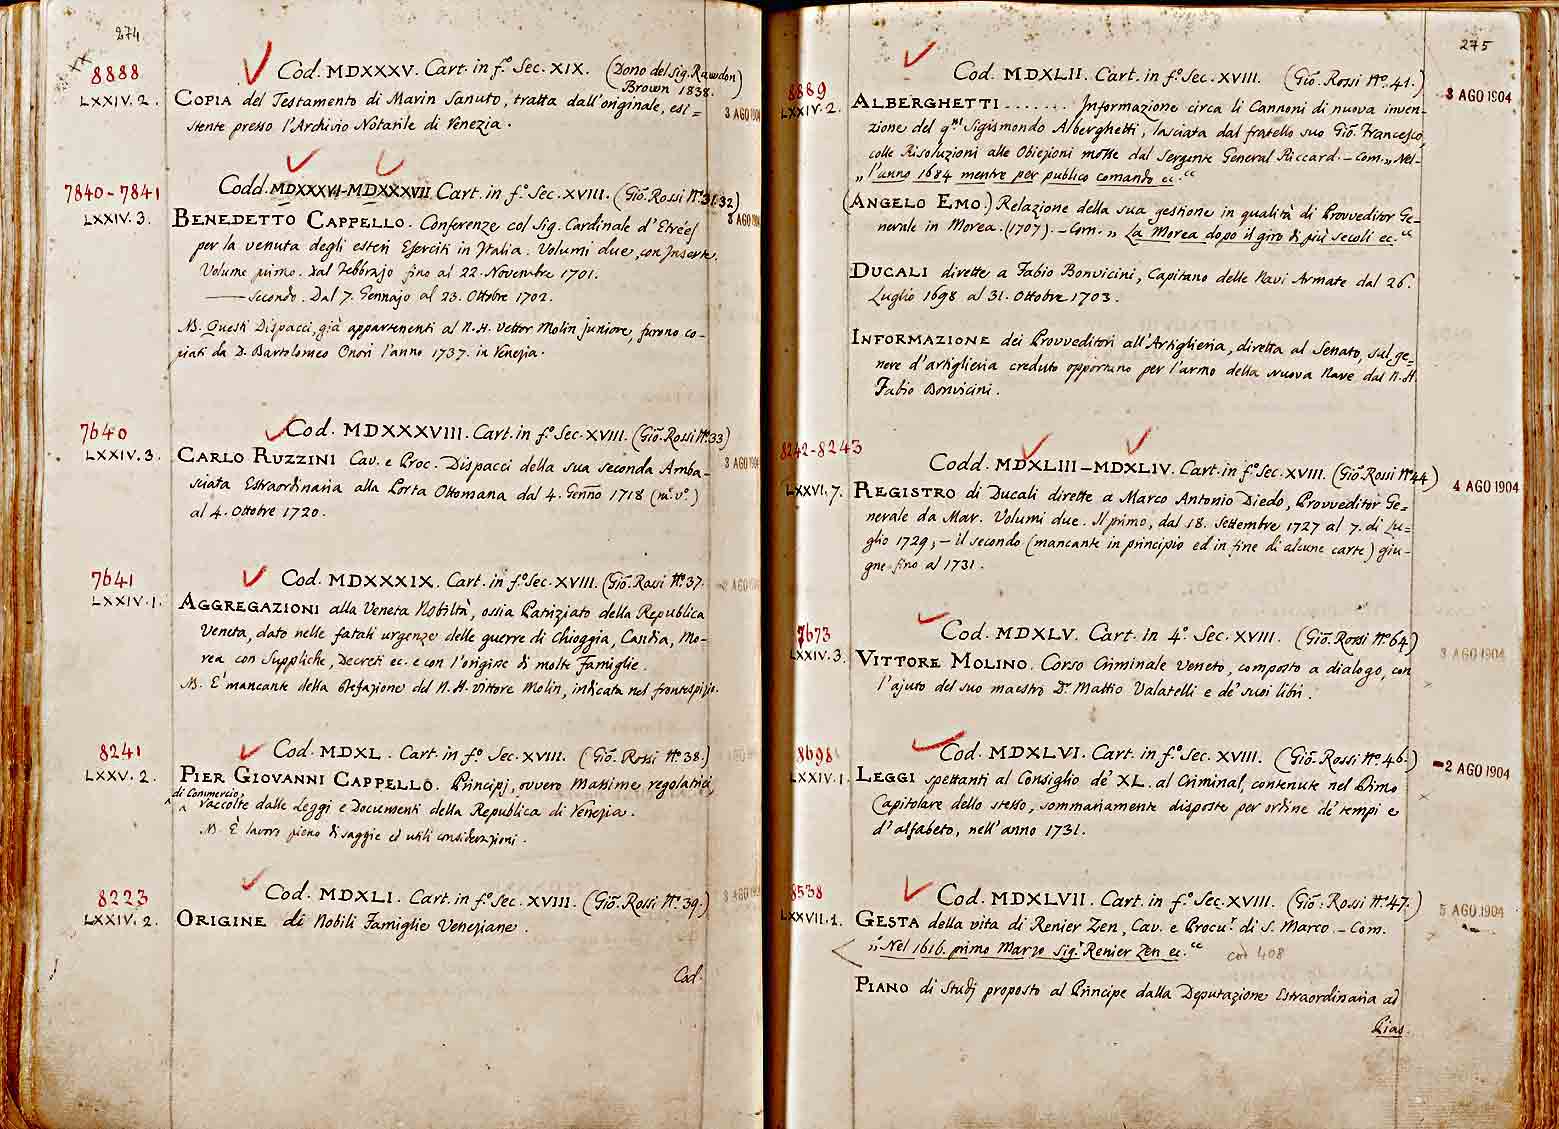 274
8888
Cod. MDXXXV. Cart. in fº. Sec. XIX. (Dono del Sig. Rawdon
Brown 1838.)
LXXIV. 2. COPIA del Testamento di Marin Sanuto, tratta dall'originale, esi=
stente presso l'Archivio Notarile di Venezia.
3 AGO 1904
7840-7841
Codd. MDXXXVI-MDXXXVII Cart. in fº. Sec. XVIII. (Gio. Rossi Nº. 31.32)
LXXIV. 3. BENEDETTO CAPPELLO. Conferenze col Sig. Cardinale d'Etrées
3 AGO 1904
per la venuta degli esteri Eserciti in Italia. Volumi due, con Inserte.
Volume primo. Dal Febbrajo fino al 22. Novembre 1701.
—— Secondo. Dal 7. Gennajo al 23. Ottobre 1702.
N. Questi Dispacci, già appartenenti al N.H. Vettor Molin juniore, furono co-
piati da D. Bartolomeo Onori l'anno 1737. in Venezia.
7640
Cod. MDXXXVIII. Cart. in fº. Sec. XVIII. (Gio. Rossi Nº. 33)
LXXIV. 3. CARLO RUZZINI Cav. e Proc. Dispacci della sua seconda Amba-
3 AGO 1904
sciata Estraordinaria alla Porta Ottomana dal 4. Genño 1718 (m. vº.)
al 4. Ottobre 1720.
7641
Cod. MDXXXIX. Cart. in fº. Sec. XVIII. (Gio. Rossi Nº. 37.
LXXIV. 1. AGGREGAZIONI alla Veneta Nobiltà, ossia Patriziato della Republica
2 AGO
Veneta, dato nelle fatali urgenze delle guerre di Chioggia, Candia, Mo-
rea con Suppliche, Decreti ec. e con l'origine di molte Famiglie.
N. E' mancante della Prefazione del N.H. Vittore Molin, indicata nel frontespizio.
8241
Cod. MDXL. Cart. in fº. Sec. XVIII. (Gio. Rossi Nº. 38.)
LXXV. 2. PIER GIOVANNI CAPPELLO. Principj, ovvero Massime regolatrici,
di Commercio,
raccolte dalle Leggi e Documenti della Republica di Venezia.
N. È lavoro pieno di saggie ed utili considerazioni.
8223
Cod. MDXLI. Cart. in fº. Sec. XVIII. (Gio. Rossi Nº. 39.)
3 AGO
LXXIV. 2. ORIGINE di Nobili Famiglie Veneziane.
Cod.
275
8889
Cod. MDXLII. Cart. in fº. Sec. XVIII. (Gio. Rossi Nº. 41.)
3 AGO 1904
LXXIV. 2. ALBERGHETTI ....... Informazione circa li Cannoni di nuova inven-
zione del qm Sigismondo Alberghetti, lasciata dal fratello suo Gio. Francesco,
colle Risoluzioni alle Obiezioni mosse dal Sergente General Riccard. – Com. „ Nel-
„ l'anno 1684 mentre per publico comando ec. “
(ANGELO EMO.) Relazione della sua gestione in qualità di Provveditor Ge-
nerale in Morea. (1707). – Com. „ La Morea dopo il giro di più secoli ec. “
DUCALI dirette a Fabio Bonvicini, Capitano delle Navi Armate dal 26.
Luglio 1698 al 31. Ottobre 1703.
INFORMAZIONE dei Provveditori all'Artiglieria, diretta al Senato, sul ge=
nere d'artiglieria creduto opportuno per l'armo della Nuova Nave dal N.H.
Fabio Bonvicini.
8242-8243
Codd. MDXLIII-MDXLIV. Cart. in fº. Sec. XVIII. (Gio. Rossi Nº. 44)
LXXVI. 7. REGISTRO di Ducali dirette a Marco Antonio Diedo, Provveditor Ge=
4 AGO 1904
nerale da Mar. Volumi due. Il primo, dal 18. Settembre 1727 al 7. di Lu=
glio 1729; – il secondo (mancante in principio ed in fine di alcune carte) giu-
gne fino al 1731.
7673
Cod. MDXLV. Cart. in 4º. Sec. XVIII. (Gio. Rossi Nº. 64.)
LXXIV. 3. VITTORE MOLINO. Corso Criminale Veneto, composto a dialogo, con
3 AGO 1904
l'ajuto del suo maestro Dr. Mattio Valatelli e de' suoi libri.
8698
Cod. MDXLVI. Cart. in fº. Sec. XVIII. (Gio. Rossi Nº. 46.)
LXXIV. 1. LEGGI spettanti al Consiglio de' XL. al Criminal, contenute nel Primo
-2 AGO 1904
Capitolare dello stesso, sommariamente disposte per ordine de' tempi e
d'alfabeto, nell'anno 1731.
8538
Cod. MDXLVII. Cart. in fº. Sec. XVIII. (Gio. Rossi Nº. 47.)
LXXVII. 1. GESTA della vita di Renier Zen, Cav. e Procur. di S. Marco. – Com.
5 AGO 1904
„ Nel 1616. primo Marzo Sigr. Renier Zen ec. “ cod 408
PIANO di Studj proposto al Principe dalla Deputazione Estraordinaria ad
Pias